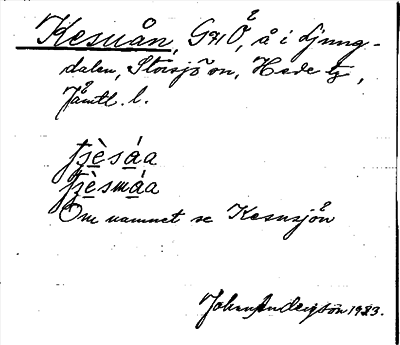 Kesuån, G410, å i Ljung-
dalen, Storsjö sn, Hede tg,
Jämtl. l.
fjèsáa
fjèsmáa
Om namnet se Kesusjön
Johan Anderson 1923.